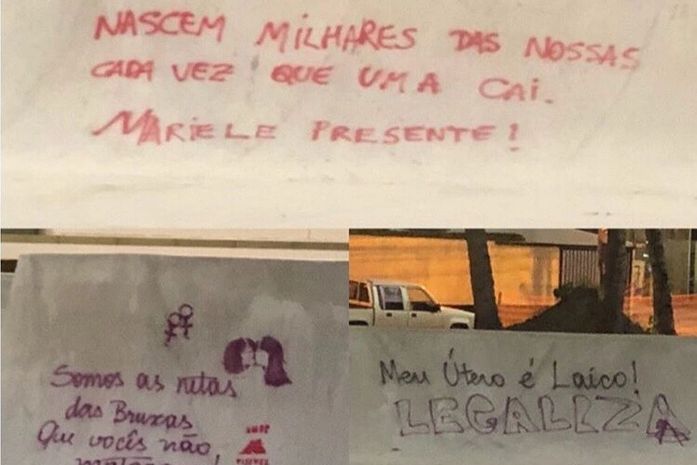 NASCEM MILHARES DAS NOSSAS
CADA VEZ QUE UMA CAI.
MARIELE PRESENTE!
Somos as netas
das Bruxas
Que vocês não
Meu Útero é Laico!
LEGALIZA